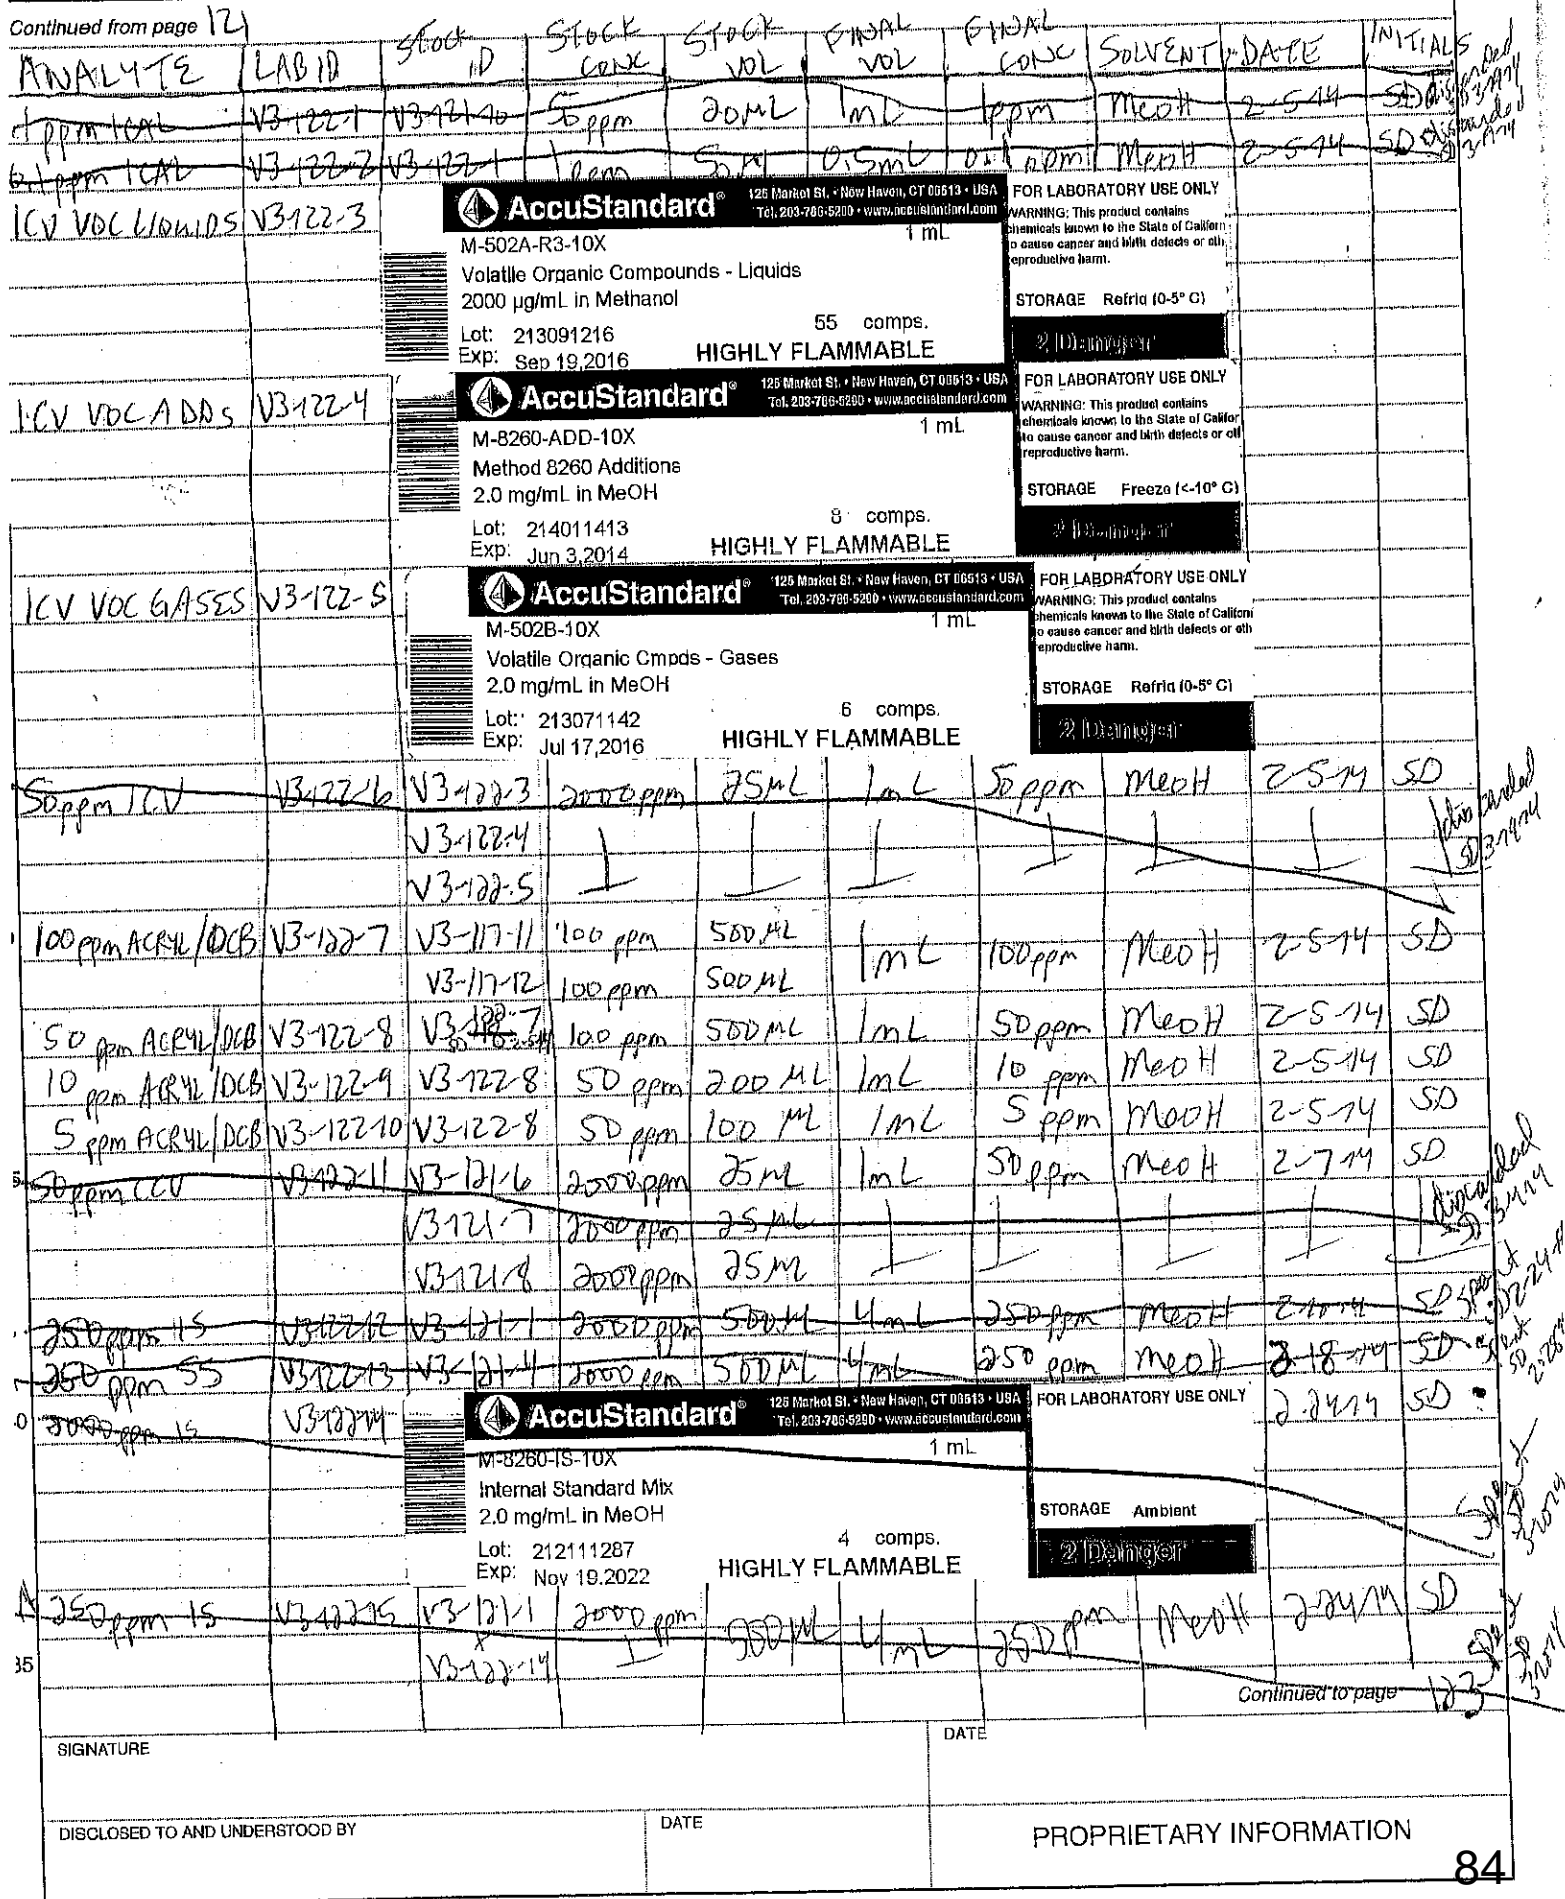 Continued from page 121
ANALYTE LAB ID STOCK ID STOCK CONC STOCK VOL FINAL VOL FINAL CONC SOLVENT DATE INITIALS
1 ppm ICAL V3-122-1 V3-121-10 50 ppm 20 µL 1 mL 1 ppm MeOH 2-5-14 SD discarded SD 3-19-14
0.1 ppm ICAL V3-122-2 V3-122-1 1 ppm 50 µL 0.5 mL 0.1 ppm MeOH 2-5-14 SD discarded SD 3-19-14
ICV VOC LIQUIDS V3-122-3
AccuStandard® 125 Market St. • New Haven, CT 06513 • USA
Tel. 203-786-5290 • www.accustandard.com
M-502A-R3-10X 1 mL
Volatile Organic Compounds - Liquids
2000 µg/mL in Methanol
Lot: 213091216 55 comps.
Exp: Sep 19,2016 HIGHLY FLAMMABLE
FOR LABORATORY USE ONLY
WARNING: This product contains
chemicals known to the State of Californ
o cause cancer and birth defects or oth
eproductive harm.
STORAGE Refrig (0-5° C)
2 Danger
ICV VOC ADDs V3-122-4
AccuStandard® 125 Market St. • New Haven, CT 06513 • USA
Tel. 203-786-5290 • www.accustandard.com
M-8260-ADD-10X 1 mL
Method 8260 Additions
2.0 mg/mL in MeOH
Lot: 214011413 8 comps.
Exp: Jun 3,2014 HIGHLY FLAMMABLE
FOR LABORATORY USE ONLY
WARNING: This product contains
chemicals known to the State of Califor
to cause cancer and birth defects or oth
reproductive harm.
STORAGE Freeze (<-10° C)
2 Danger
ICV VOC GASES V3-122-5
AccuStandard® 125 Market St. • New Haven, CT 06513 • USA
Tel. 203-786-5290 • www.accustandard.com
M-502B-10X 1 mL
Volatile Organic Cmpds - Gases
2.0 mg/mL in MeOH
Lot: 213071142 6 comps.
Exp: Jul 17,2016 HIGHLY FLAMMABLE
FOR LABORATORY USE ONLY
WARNING: This product contains
chemicals known to the State of Californi
o cause cancer and birth defects or oth
eproductive harm.
STORAGE Refrig (0-5° C)
2 Danger
50 ppm ICV V3-122-6 V3-122-3 2000 ppm 25 µL 1 mL 50 ppm MeOH 2-5-14 SD
V3-122-4 discarded
V3-122-5
100 ppm ACRYL/DCB V3-122-7 V3-117-11 100 ppm 500 µL 1 mL 100 ppm MeOH 2-5-14 SD
V3-117-12 100 ppm 500 µL
50 ppm ACRYL/DCB V3-122-8 V3-122-7 100 ppm 500 µL 1 mL 50 ppm MeOH 2-5-14 SD
10 ppm ACRYL/DCB V3-122-9 V3-122-8 50 ppm 200 µL 1 mL 10 ppm MeOH 2-5-14 SD
5 ppm ACRYL/DCB V3-122-10 V3-122-8 50 ppm 100 µL 1 mL 5 ppm MeOH 2-5-14 SD
50 ppm CCV V3-122-11 V3-121-6 2000 ppm 25 µL 1 mL 50 ppm MeOH 2-7-14 SD
V3-121-7 2000 ppm 25 µL discarded
V3-121-8 2000 ppm 25 µL
250 ppm IS V3-122-12 V3-121-1 2000 ppm 500 µL 4 mL 250 ppm MeOH 2-10-14 SD spent SD 2-24-14
250 ppm SS V3-122-13 V3-121-4 2000 ppm 500 µL 4 mL 250 ppm MeOH 2-18-14 SD spent SD
2000 ppm IS V3-122-14 2-24-14 SD
AccuStandard® 125 Market St. • New Haven, CT 06513 • USA
Tel. 203-786-5290 • www.accustandard.com
M-8260-IS-10X 1 mL
Internal Standard Mix
2.0 mg/mL in MeOH
Lot: 212111287 4 comps.
Exp: Nov 19.2022 HIGHLY FLAMMABLE
FOR LABORATORY USE ONLY
STORAGE Ambient
2 Danger
Spent SD
250 ppm IS V3-122-15 V3-121-1 2000 ppm 500 µL 4 mL 250 ppm MeOH 2-24-14 SD
V3-122-14 Spent SD
35
Continued to page 123
SIGNATURE DATE
DISCLOSED TO AND UNDERSTOOD BY DATE PROPRIETARY INFORMATION
84